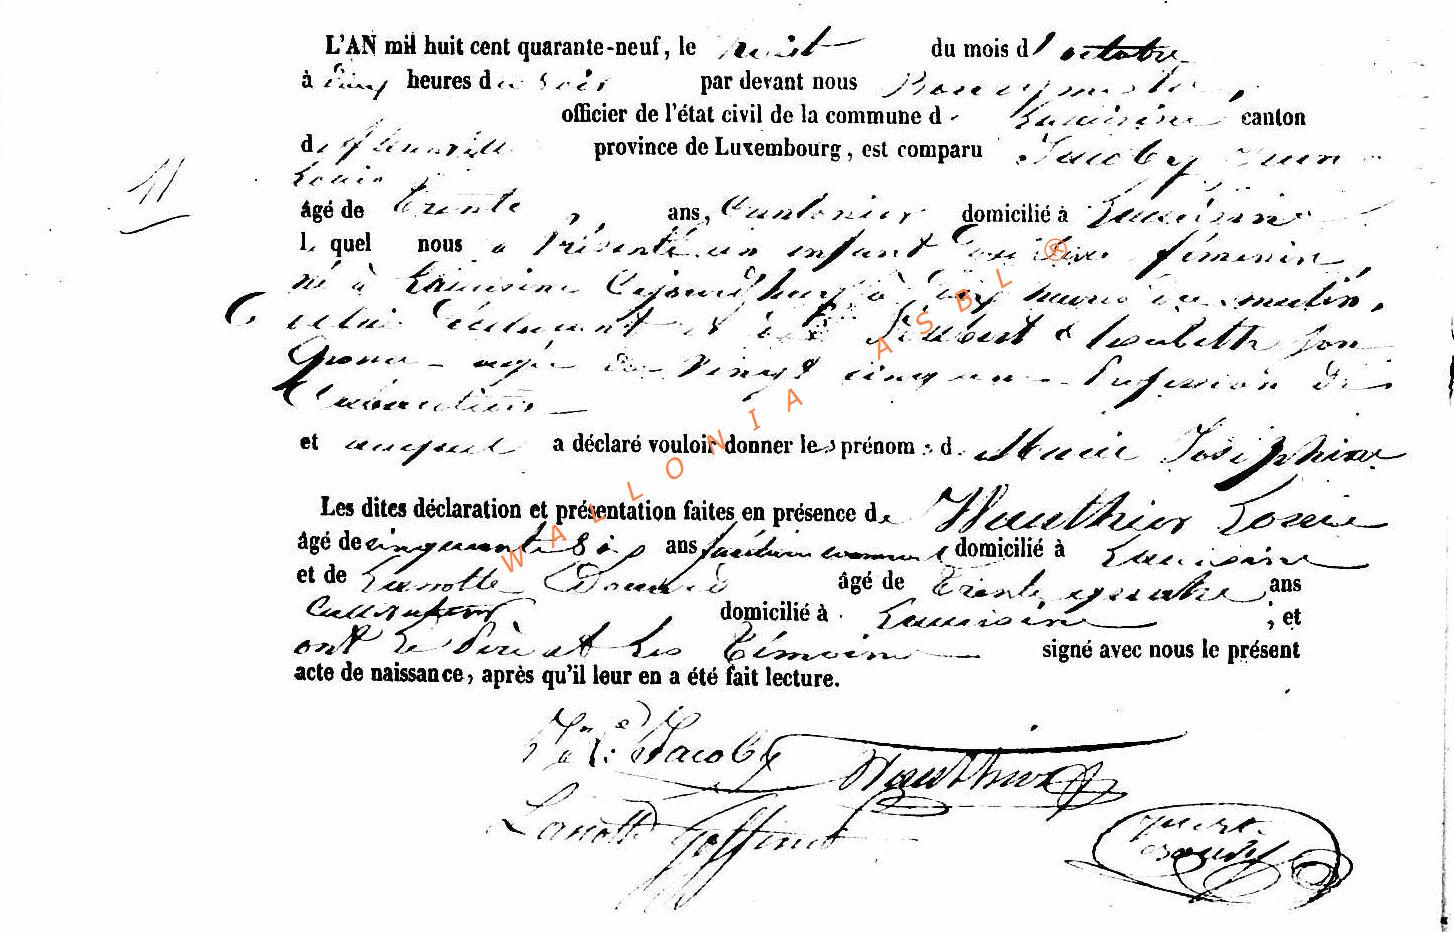 L'AN mil huit cent quarante-neuf, le huit du mois d' octobre
à cinq heures du soir par devant nous Bourgmestre,
officier de l'état civil de la commune d. Lacuisine canton
de florenville province de Luxembourg, est comparu Jacoby Jean
Louis
11
âgé de trente ans, Cantonier domicilié à Lacuisine
lequel nous a présenté un enfant du sexe féminin,
né à Lacuisine aujourd'huy à dix heures du matin,
de lui déclarant et de Elisabeth son
épouse agée de vingt cinq ans Profession de
et auquel a déclaré vouloir donner les prénoms d. Marie Joséphine
Les dites déclaration et présentation faites en présence de Wauthier
âgé de cinquante Six ans domicilié à Lacuisine
et de Lanotte âgé de trente quatre ans
Cultivateur domicilié à Lacuisine ; et
ont le Père et les témoins signé avec nous le présent
acte de naissance, après qu'il leur en a été fait lecture.
Jacoby Wauthier
Lanotte Goffinet
WALLONIA ASBL ®